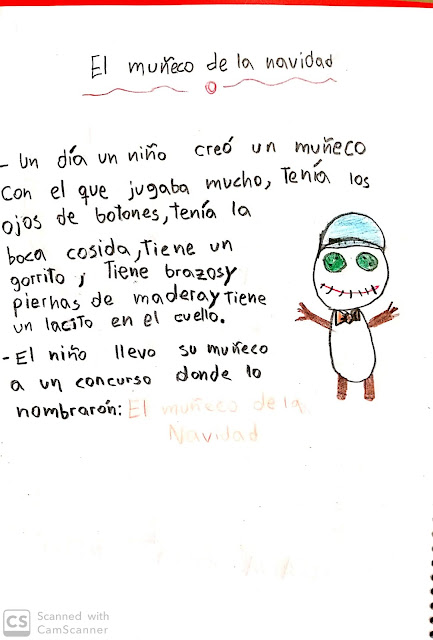 El muñeco de la navidad
- Un día un niño creó un muñeco
con el que jugaba mucho, Tenía los
ojos de botones, tenía la
boca cosida, Tiene un
gorrito, Tiene brazos y
piernas de madera y Tiene
un lacito en el cuello.
- El niño llevo su muñeco
a un concurso donde lo
nombrarón: El muñeco de la
Navidad
CS Scanned with
CamScanner